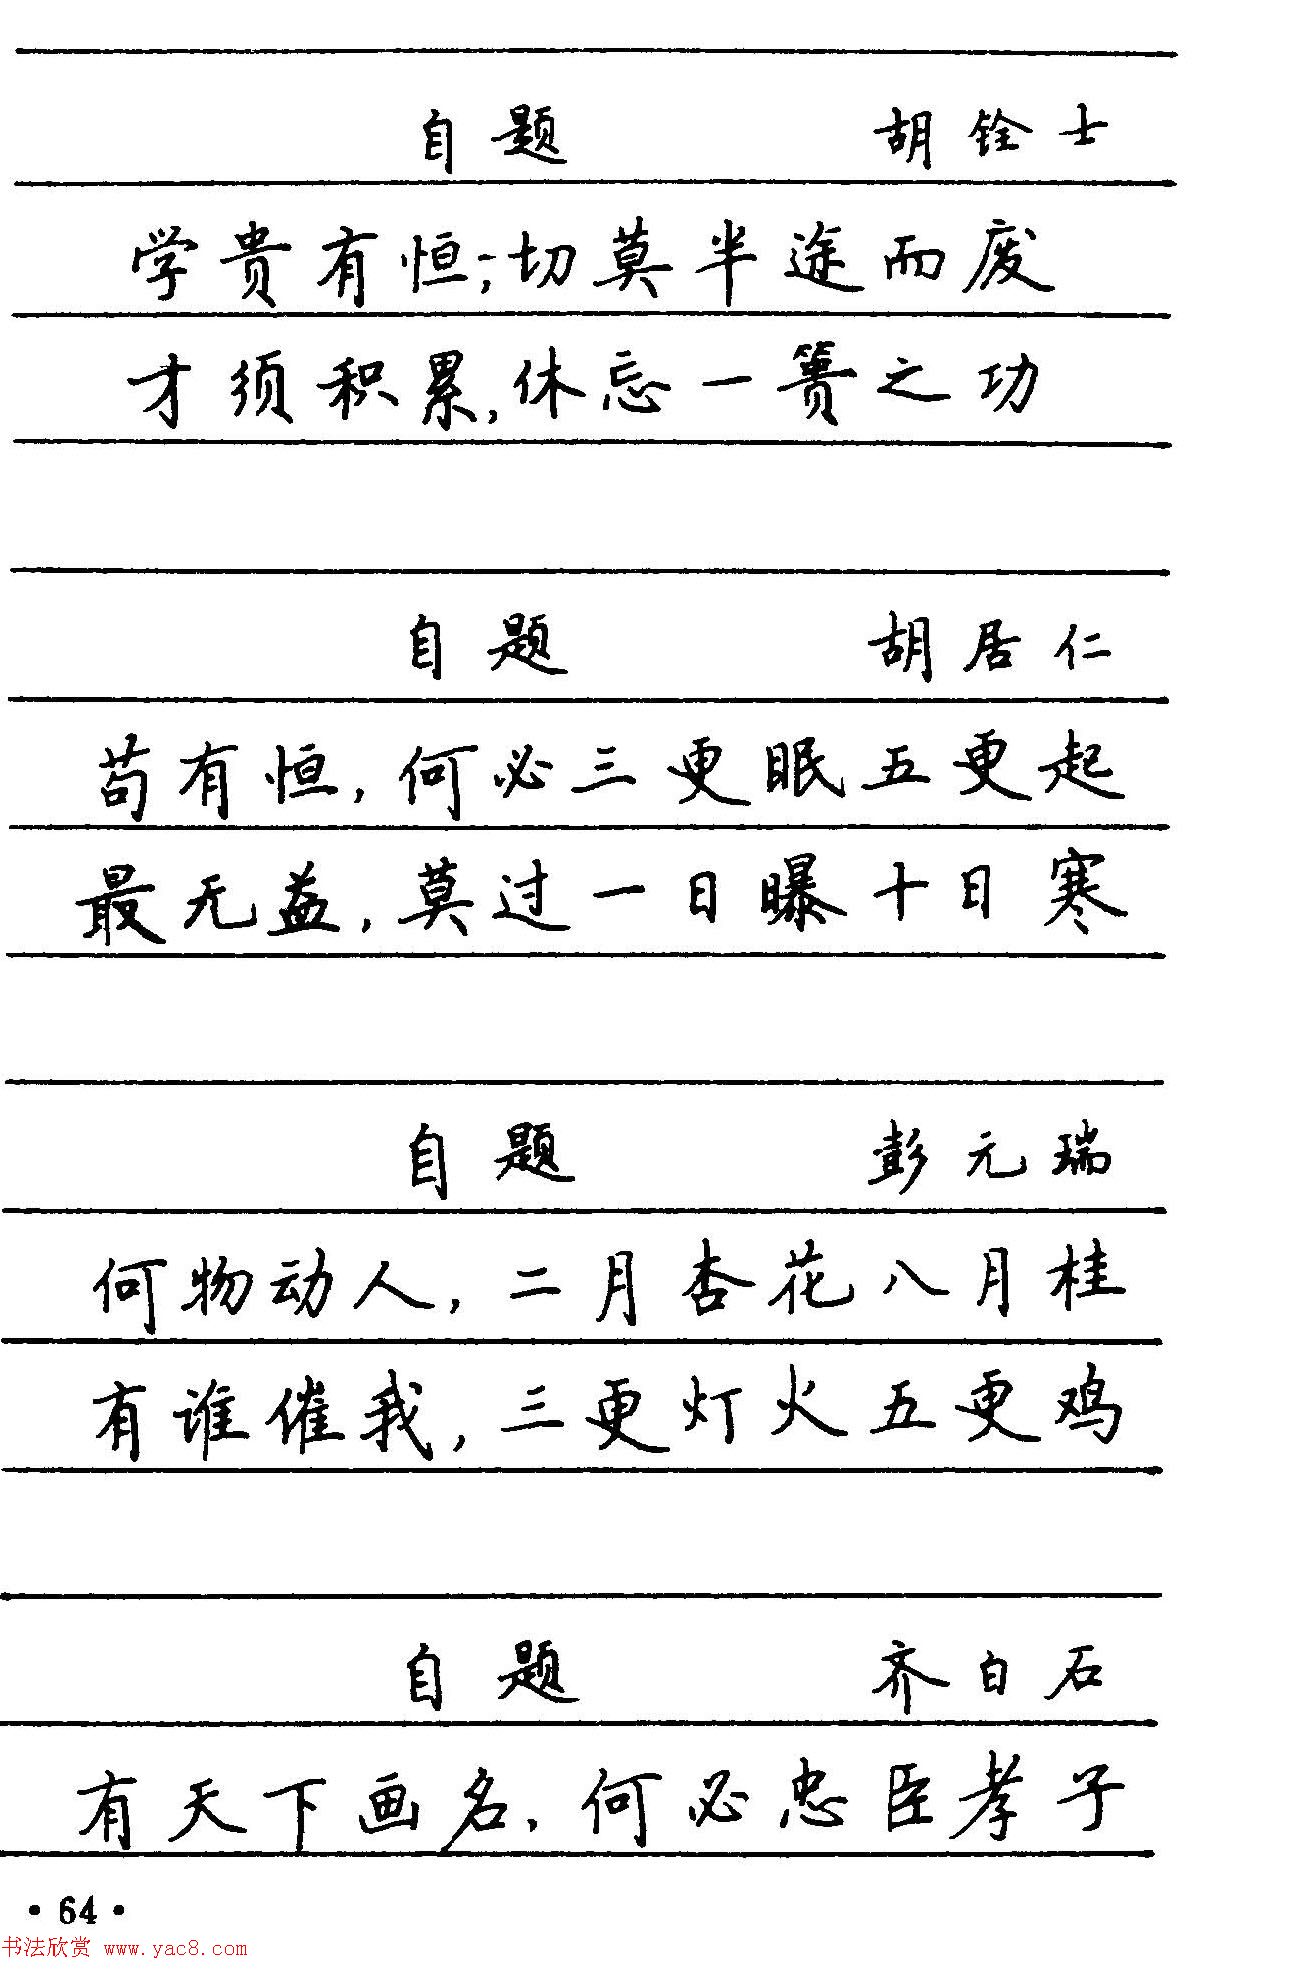 自题 胡铨士
学贵有恒;切莫半途而废
才须积累,休忘一篑之功
自题 胡居仁
苟有恒,何必三更眠五更起
最无益,莫过一日曝十日寒
自题 彭元瑞
何物动人,二月杏花八月桂
有谁催我,三更灯火五更鸡
自题 齐白石
有天下画名,何必忠臣孝子
·64·
书法欣赏 www.yac8.com